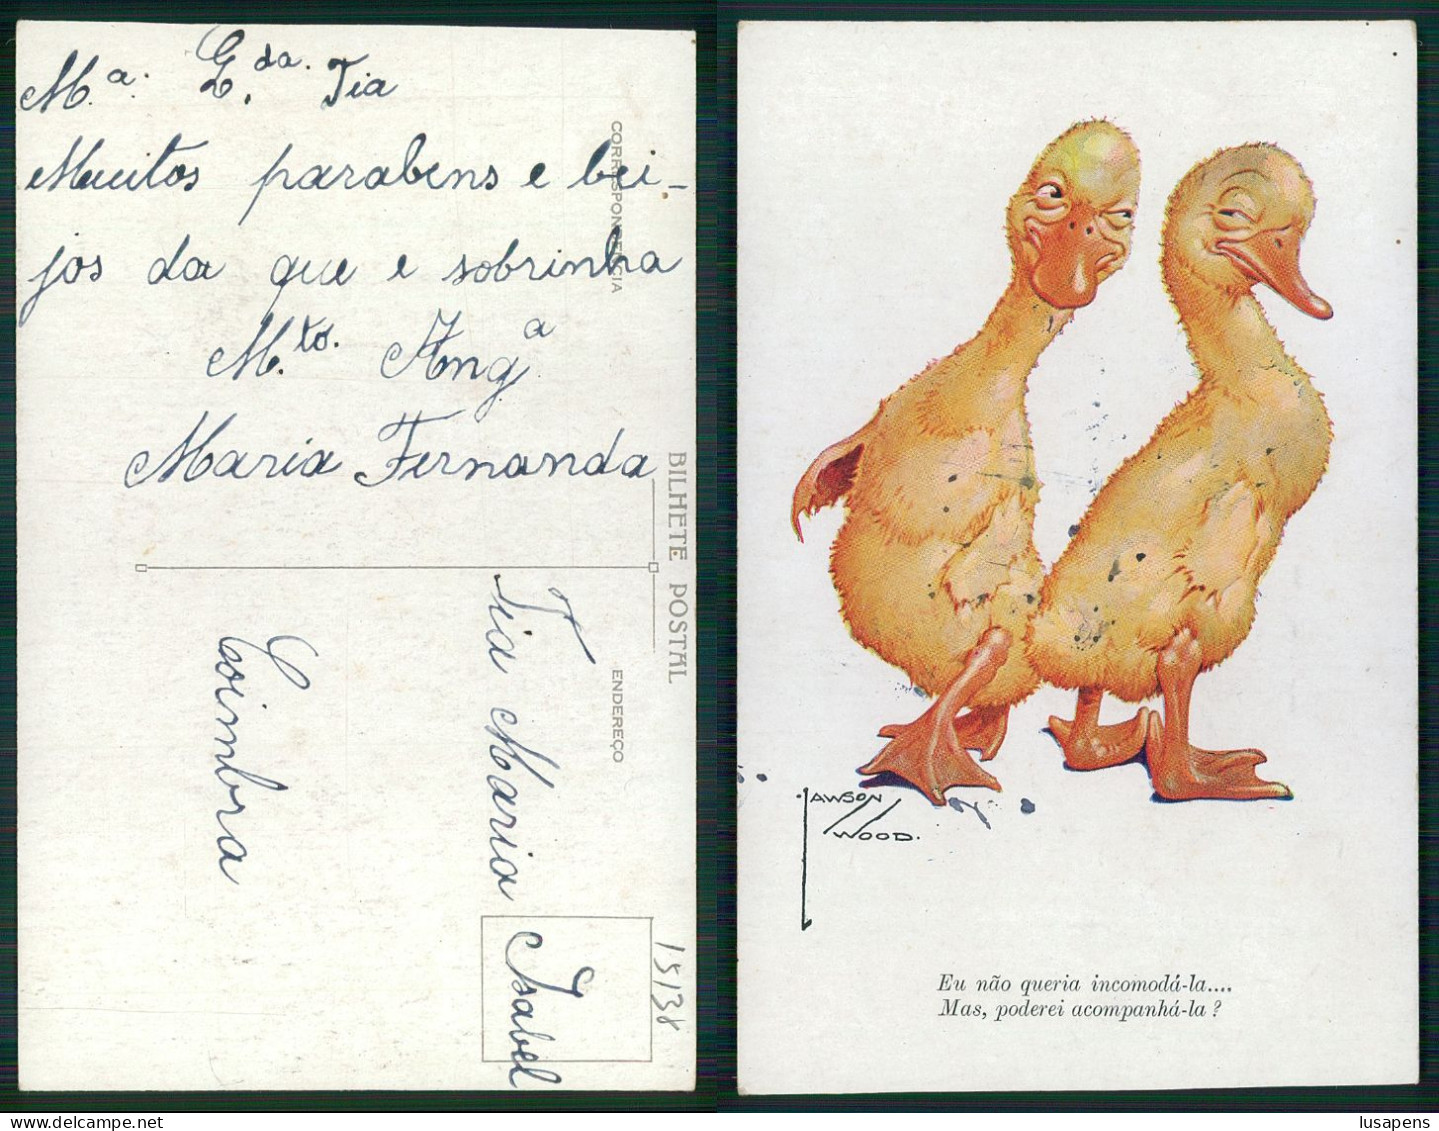 M.ª Q.da Tia
Muitos parabens e bei-
jos da que e sobrinha
M.to. Ang.ª
Maria Fernanda
CORRESPONDENCIA
BILHETE POSTAL
ENDEREÇO
Tia Maria Isabel
Coimbra
15138
LAWSON
WOOD.
Eu não queria incomodá-la....
Mas, poderei acompanhá-la ?
lusapens